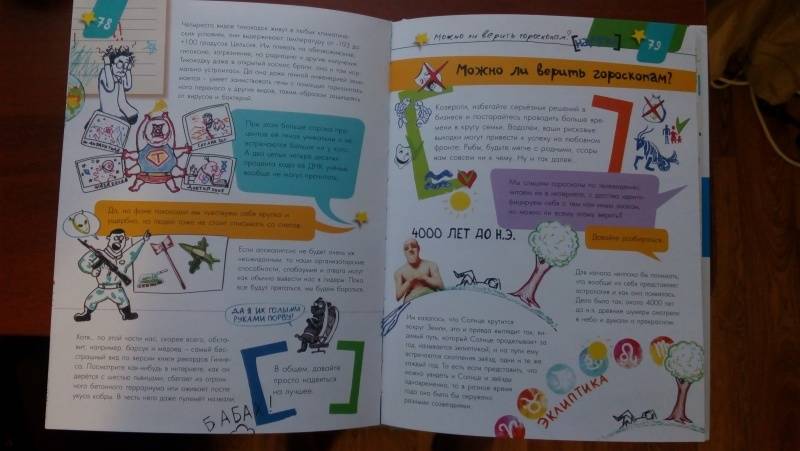 78
Четыреста видов тихоходок живут в любых климатиче-
ских условиях, они выдерживают температуру от -193 до
+100 градусов Цельсия. Им плевать на обезвоживание,
Тихоходку даже в открытый космос брали, она и там нор-
мально устроилась. Да она даже генной инженерией зани-
мается – умеет заимствовать гены с помощью горизонталь-
ного переноса у других видов, таким образом защищаясь
от вирусов и бактерий.
При этом больше сорока про-
центов её генов уникальны и не
встречаются больше ни у кого.
А два целых четыре десятых
процента кода её ДНК учёные
вообще не могут прочитать.
Да, на фоне тихоходки мы чувствуем себя хрупко и
ущербно, но людей тоже не стоит списывать со счетов.
Если апокалипсис не будет очень уж
неожиданным, то наши организаторские
способности, слабоумие и отвага могут
как обычно вывести нас в лидеры. Пока
все будут прятаться, мы будем бороться.
ДА Я ИХ ГОЛЫМИ
РУКАМИ ПОРВУ!
Хотя... по этой части нас, скорее всего, обста-
вит, например, барсук и медоед – самый бес-
страшный вид по версии книги рекордов Гинне-
са. Посмотрите как-нибудь в интернете, как он
дерётся с шестью львицами, сбегает из огром-
ного бетонного террариума или оживает после
укуса кобры. В честь него даже пулемёт назвали.
В общем, давайте
просто надеяться
на лучшее.
БАБАХ!
Можно ли верить гороскопам?
79
Можно ли верить гороскопам?
Козероги, избегайте серьёзных решений в
бизнесе и постарайтесь проводить больше вре-
мени в кругу семьи. Водолеи, ваши рисковые
выходки могут привести к успеху на любовном
фронте. Рыбы, будьте мягче с родными, ссоры
вам совсем ни к чему. Ну и так далее.
Мы слышим гороскопы по телевидению,
читаем их в интернете, с детства иденти-
фицируем себя с тем или иным знаком,
но можно ли всему этому верить?
Давайте разбираться.
4000 ЛЕТ ДО Н.Э.
Для начала неплохо бы понимать,
что вообще из себя представляет
астрология и как она появилась.
Дело было так: около 4000 лет
до н.э. древние шумеры смотрели
в небо и думали о прекрасном.
Им казалось, что Солнце крутится
вокруг Земли, это и правда выглядит так, ви-
димый путь, который Солнце проделывает за
год, называется эклиптикой, и на пути ему
встречаются скопления звёзд, одни и те же
каждый год. То есть если представить, что
можно увидеть и Солнце и звёзды
одновременно, то в разное время
года оно было бы окружено
разными созвездиями.
ЭКЛИПТИКА